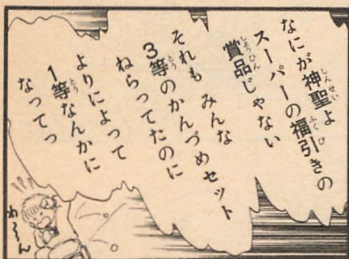 なにが神聖よ
スーパーの福引きの
賞品じゃない
それも みんな
3等のかんづめセット
ねらってたのに
よりによって
1等なんかに
なってっ
わーん